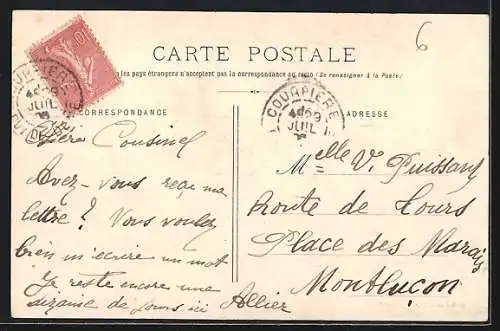 6
CARTE POSTALE
les pays étrangers n'acceptent pas la correspondance au recto (Se renseigner à la Poste)
CORRESPONDANCE
ADRESSE
10
COURPIÈRE
JUIL
COURPIÈRE
JUIL
PUY DE DÔME
Cousine
Avez-vous reçu ma
lettre? Vous voulez
bien m'écrire un mot
Je reste encore une
dizaine de jours ici
Melle V. Puissant
Route de Tours
Place des Marais
Montluçon
Allier